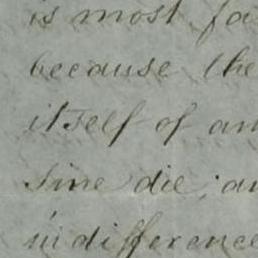 is most fa
because the
itself of an
Sine die; an
indifference